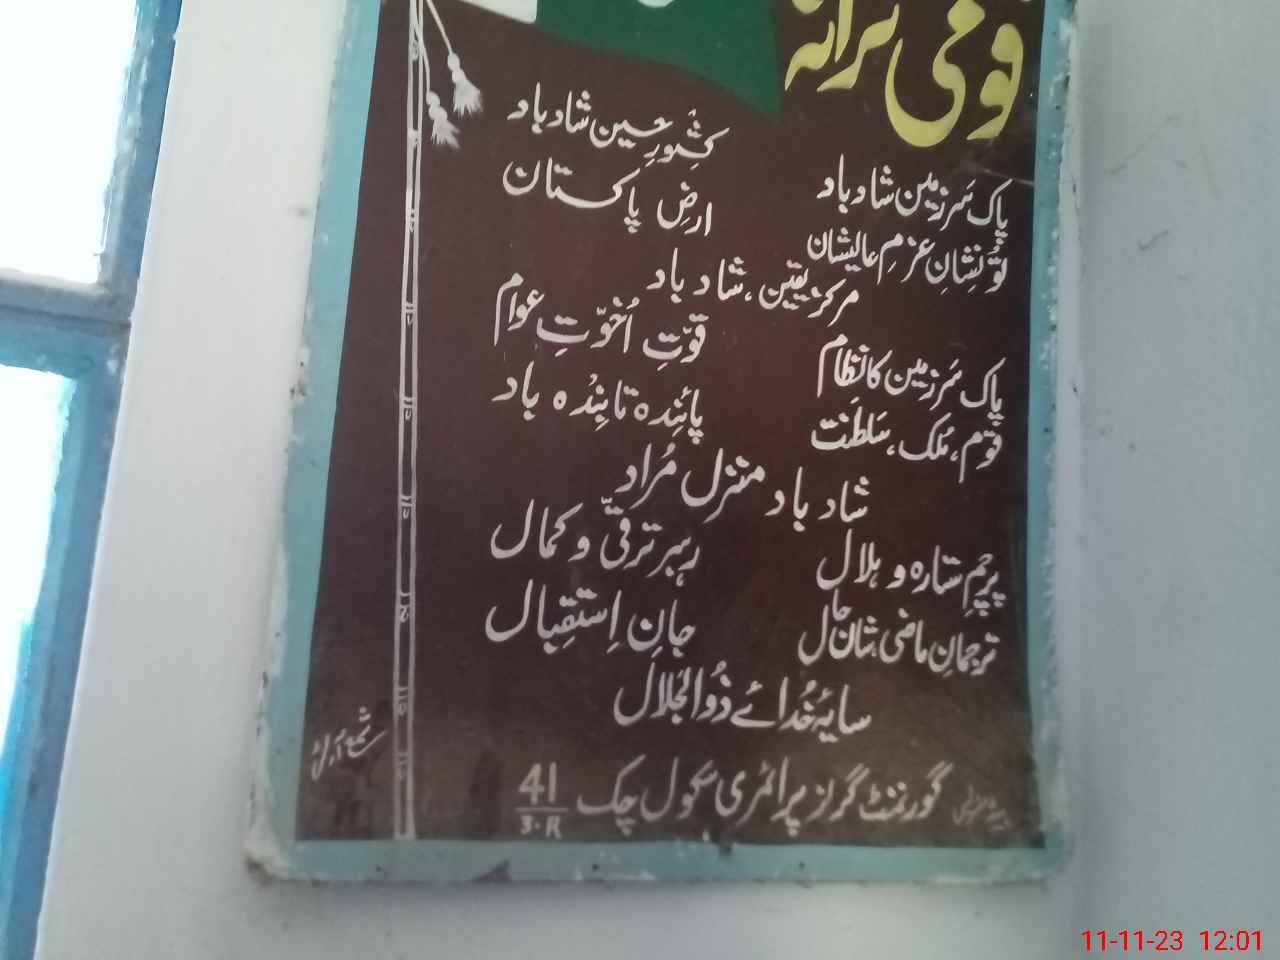 قومی ترانہ
پاک سَرزمین شاد باد کشورِ حسین شاد باد
تُو نِشانِ عزمِ عالیشان ارضِ پاکستان
مرکزِ یقین، شاد باد
پاک سَرزمین کا نظام قوّتِ اُخوّتِ عوام
قوم، مُلک، سَلطَنت پائِندہ تابِندہ باد
شاد باد منزل مُراد
پرچمِ ستارہ و ہلال رہبر ترقیّ و کمال
ترجمانِ ماضی شان حال جانِ اِستقِبال
سایۂ خُدائے ذُوالجلال
گورنمنٹ گرلز پرائمری سکول چک 41
3-R
11-11-23 12:01